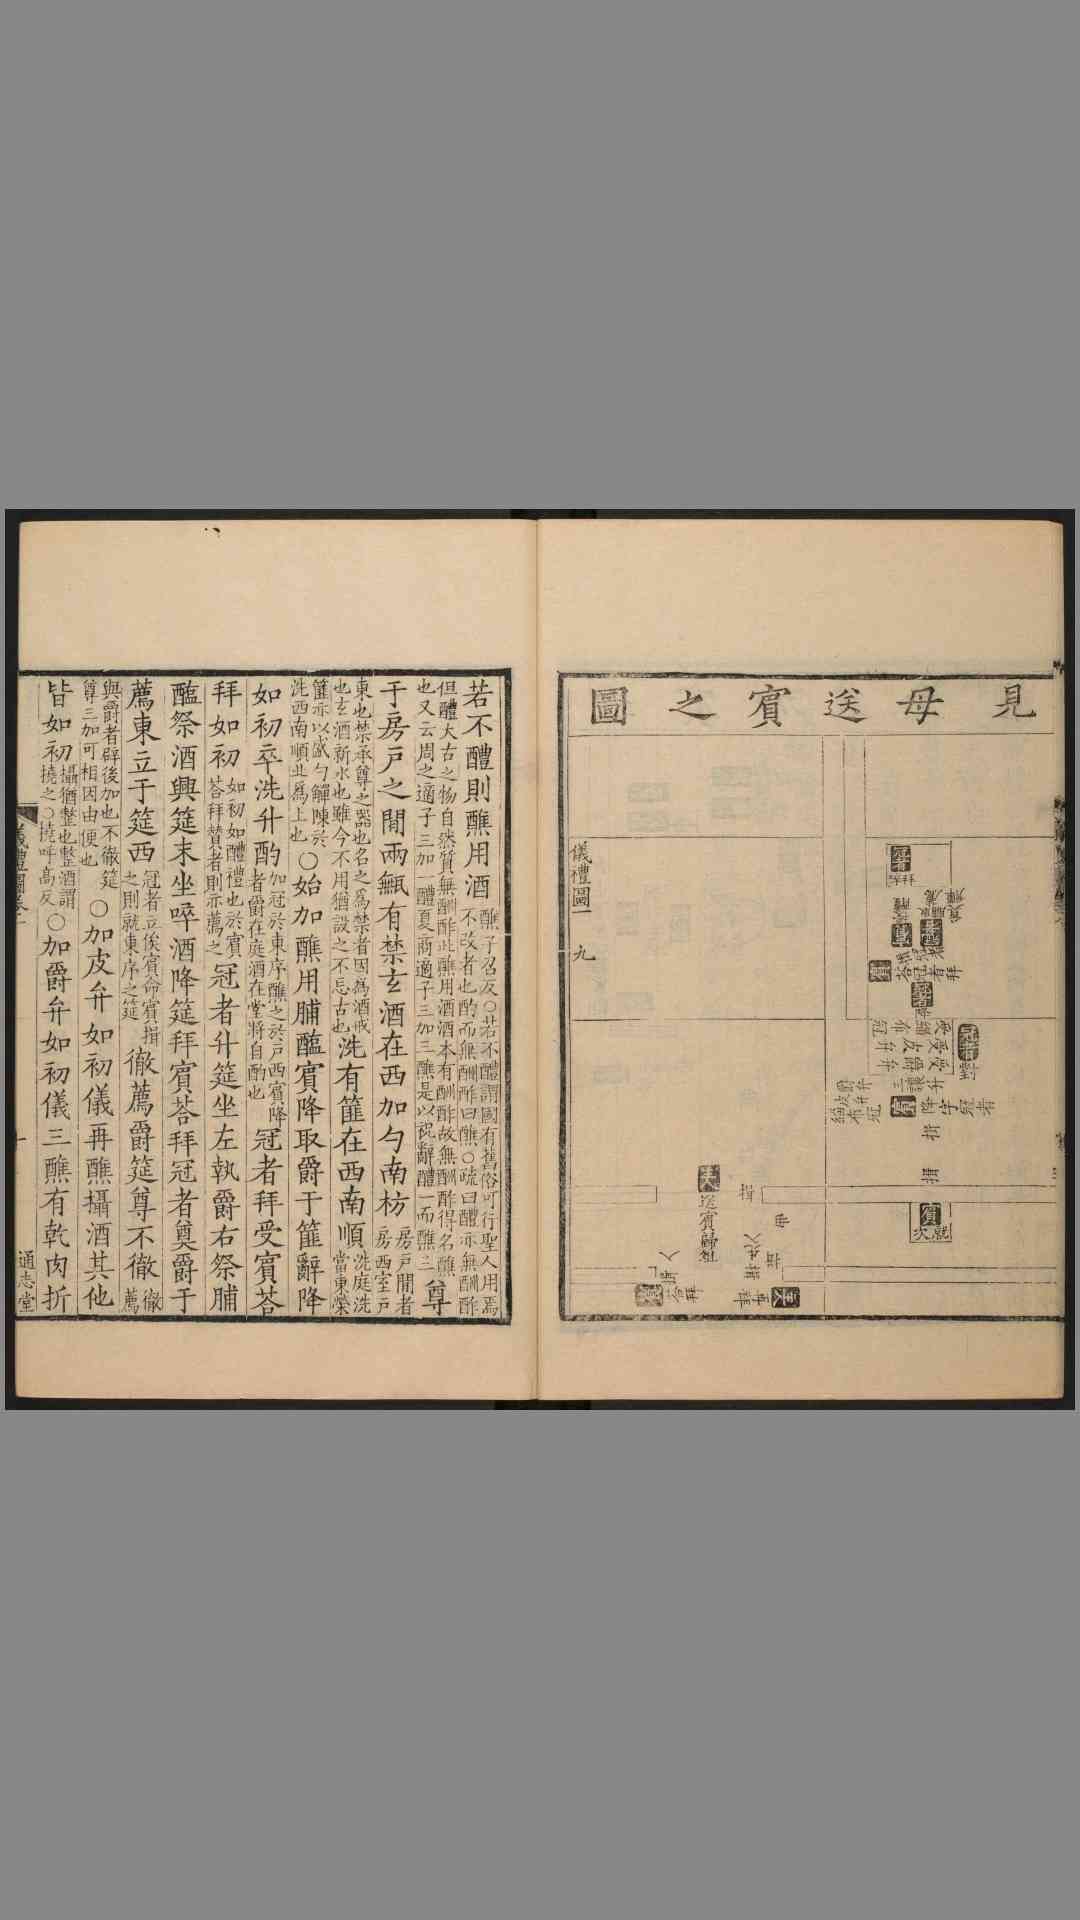 見母送賓之圖
儀禮圖一
九
送賓歸俎
揖
揖
揖
賓
就次
若不醴則醮用酒醮子召反○若不醴謂國有舊俗可行聖人用焉不改者也酌而無酬酢曰醮○疏曰醴亦無酬酢
但醴大古之物自然質無酬酢此醮用酒酒本有酬酢故無酬酢得名醮也又云周之適子三加一醴夏商適子三加三醮是以祝辭醴一而醮三尊
于房戶之閒兩甒有禁玄酒在西加勺南枋房戶閒者房西室戶
東也禁承尊之器也名之爲禁者因爲酒戒也玄酒新水也雖今不用猶設之不忘古也洗有篚在西南順洗庭洗當東榮
篚亦以盛勺觶陳於洗西南順北爲上也○始加醮用脯醢賓降取爵于篚辭降
如初卒洗升酌加冠於東序醮之於戶西賓降者爵在庭酒在堂將自酌也冠者拜受賓荅
拜如初如初如醴禮也於賓荅拜贊者則亦薦之冠者升筵坐左執爵右祭脯
醢祭酒興筵末坐啐酒降筵拜賓荅拜冠者奠爵于
薦東立于筵西冠者立俟賓命賓揖之則就東序之筵徹薦爵筵尊不徹徹薦
與爵者辟後加也不徹筵尊三加可相因由便也○加皮弁如初儀再醮攝酒其他
皆如初攝猶整也整酒謂撓之○撓呼高反○加爵弁如初儀三醮有乾肉折
通志堂